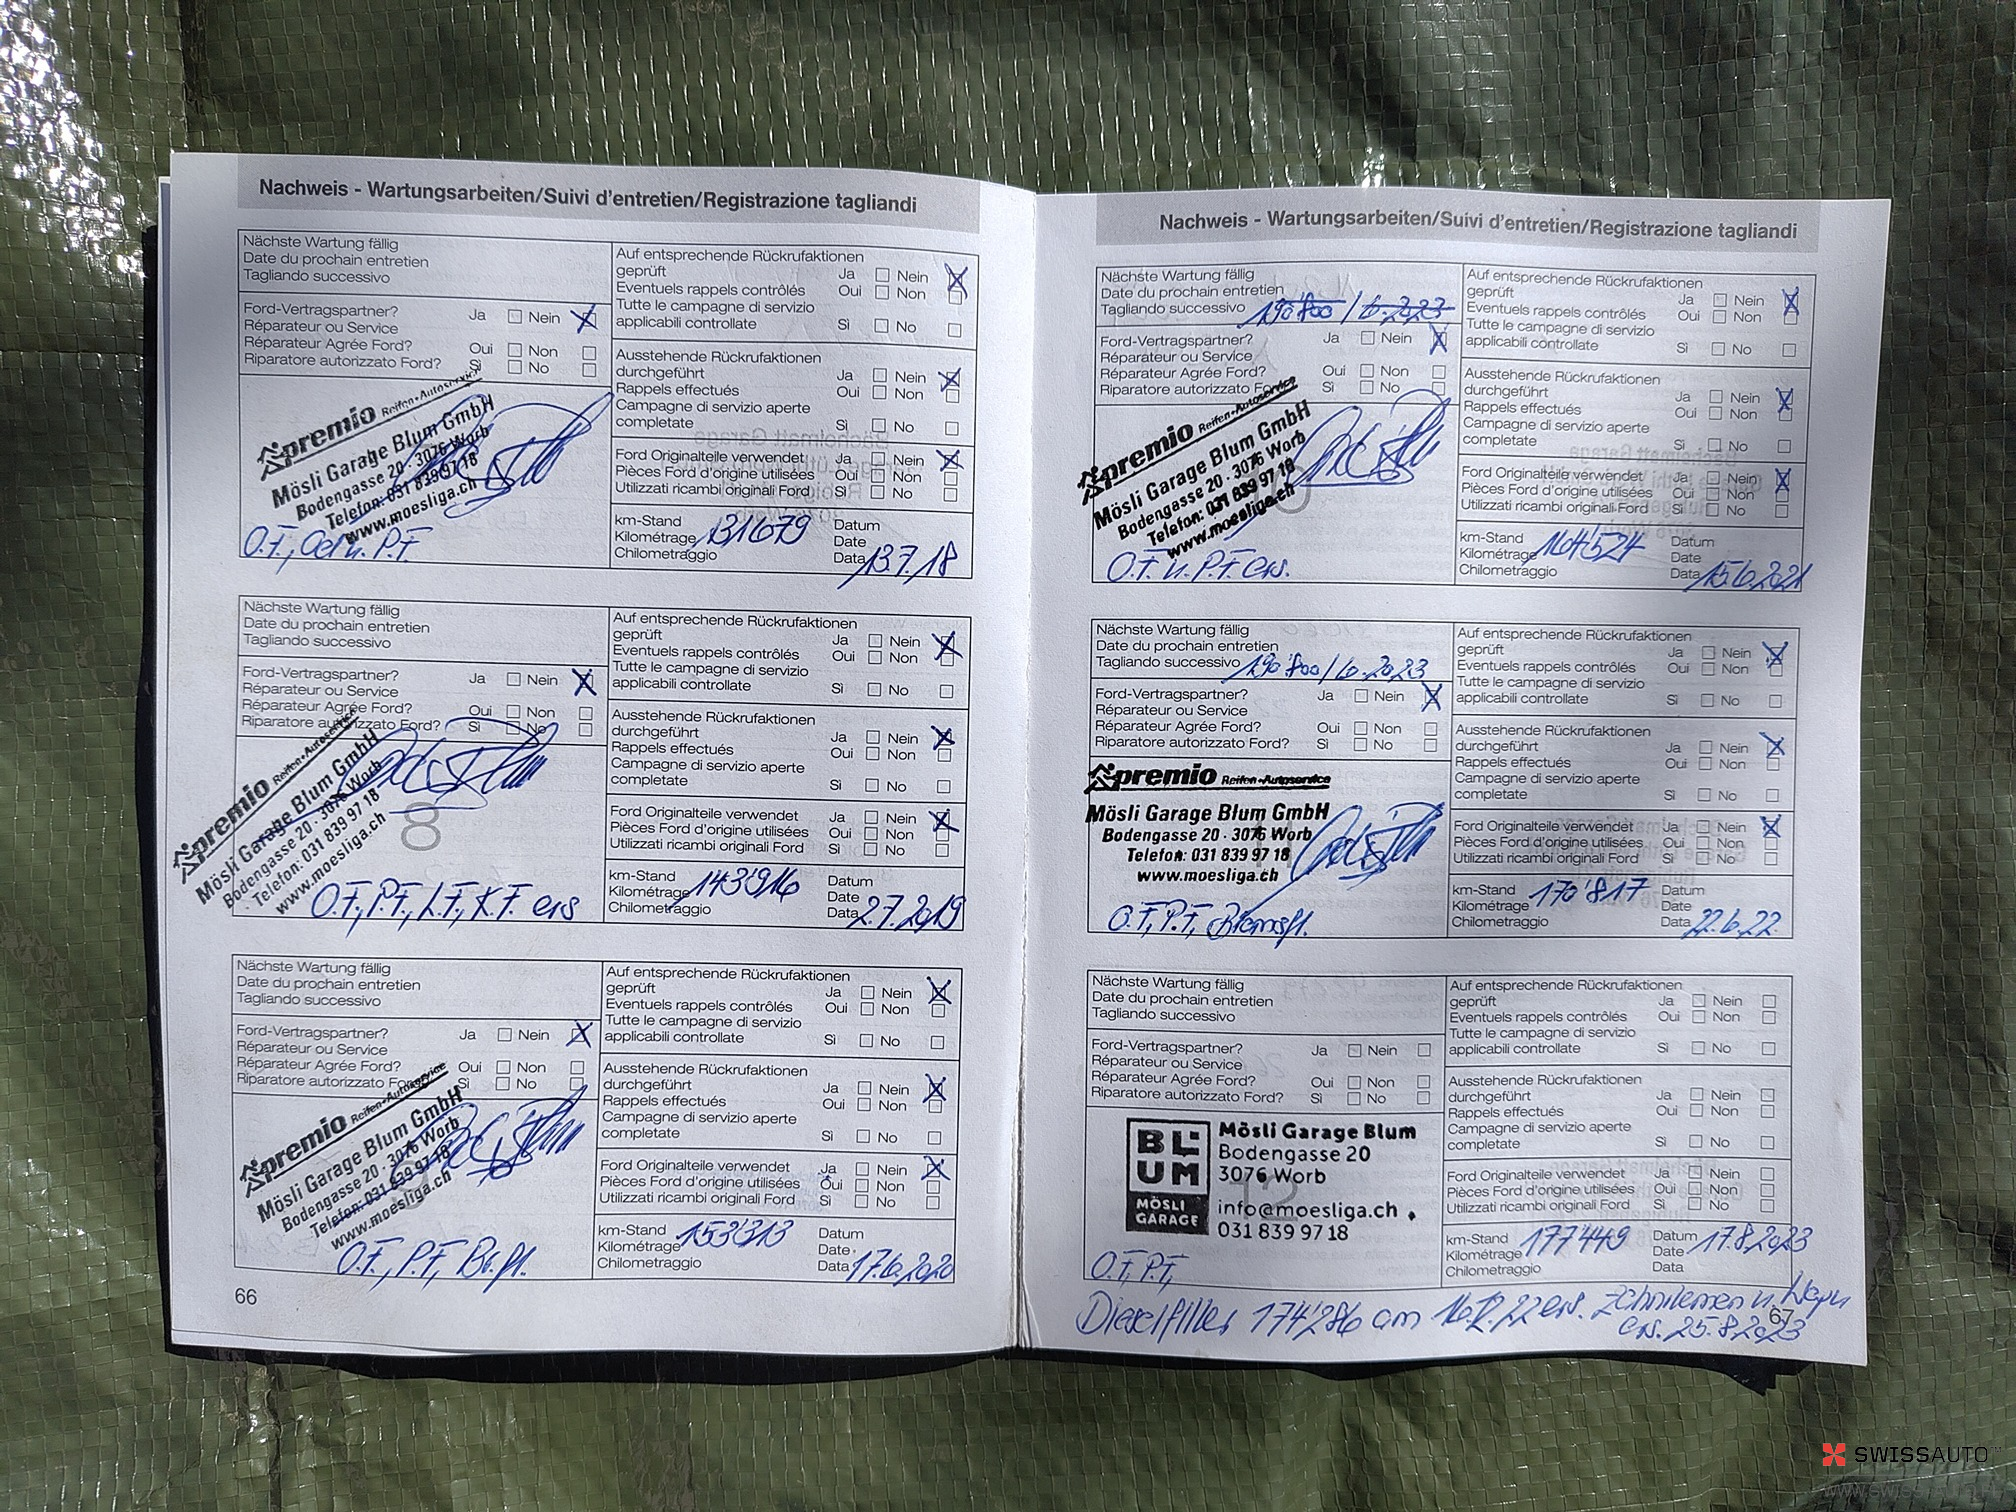 Nachweis - Wartungsarbeiten/Suivi d'entretien/Registrazione tagliandi
Nächste Wartung fällig
Date du prochain entretien
Tagliando successivo
Ford-Vertragspartner? Ja Nein
Réparateur ou Service
Réparateur Agrée Ford? Oui Non
Riparatore autorizzato Ford? Sì No
premio Reifen-Autoservice
Mösli Garage Blum GmbH
Bodengasse 20 · 3076 Worb
Telefon: 031 839 97 18
www.moesliga.ch
O.F., u. P.F.
Auf entsprechende Rückrufaktionen
geprüft Ja Nein
Eventuels rappels contrôlés Oui Non
Tutte le campagne di servizio
applicabili controllate Sì No
Ausstehende Rückrufaktionen
durchgeführt Ja Nein
Rappels effectués Oui Non
Campagne di servizio aperte
completate Sì No
Ford Originalteile verwendet Ja Nein
Pièces Ford d'origine utilisées Oui Non
Utilizzati ricambi originali Ford Sì No
km-Stand Datum
Kilométrage 131679 Date
Chilometraggio Data 13.7.18
Nächste Wartung fällig
Date du prochain entretien
Tagliando successivo
Ford-Vertragspartner? Ja Nein
Réparateur ou Service
Réparateur Agrée Ford? Oui Non
Riparatore autorizzato Ford? Sì No
premio Reifen-Autoservice
Mösli Garage Blum GmbH
Bodengasse 20 · 3076 Worb
Telefon: 031 839 97 18
www.moesliga.ch
8
O.F., P.F., I.F., K.F. ers
Auf entsprechende Rückrufaktionen
geprüft Ja Nein
Eventuels rappels contrôlés Oui Non
Tutte le campagne di servizio
applicabili controllate Sì No
Ausstehende Rückrufaktionen
durchgeführt Ja Nein
Rappels effectués Oui Non
Campagne di servizio aperte
completate Sì No
Ford Originalteile verwendet Ja Nein
Pièces Ford d'origine utilisées Oui Non
Utilizzati ricambi originali Ford Sì No
km-Stand Datum
Kilométrage 143'916 Date
Chilometraggio Data 2.7.2019
Nächste Wartung fällig
Date du prochain entretien
Tagliando successivo
Ford-Vertragspartner? Ja Nein
Réparateur ou Service
Réparateur Agrée Ford? Oui Non
Riparatore autorizzato Ford? Sì No
premio Reifen-Autoservice
Mösli Garage Blum GmbH
Bodengasse 20 · 3076 Worb
Telefon: 031 839 97 18
www.moesliga.ch
O.F., P.F., Br.fl.
Auf entsprechende Rückrufaktionen
geprüft Ja Nein
Eventuels rappels contrôlés Oui Non
Tutte le campagne di servizio
applicabili controllate Sì No
Ausstehende Rückrufaktionen
durchgeführt Ja Nein
Rappels effectués Oui Non
Campagne di servizio aperte
completate Sì No
Ford Originalteile verwendet Ja Nein
Pièces Ford d'origine utilisées Oui Non
Utilizzati ricambi originali Ford Sì No
km-Stand Datum
Kilométrage 153'313 Date
Chilometraggio Data 17.6.2020
66
Nachweis - Wartungsarbeiten/Suivi d'entretien/Registrazione tagliandi
Nächste Wartung fällig
Date du prochain entretien
Tagliando successivo 190'800 / 6.2023
Ford-Vertragspartner? Ja Nein
Réparateur ou Service
Réparateur Agrée Ford? Oui Non
Riparatore autorizzato Ford? Sì No
premio Reifen-Autoservice
Mösli Garage Blum GmbH
Bodengasse 20 · 3076 Worb
Telefon: 031 839 97 18
www.moesliga.ch
O.F. u. P.F. ers.
Auf entsprechende Rückrufaktionen
geprüft Ja Nein
Eventuels rappels contrôlés Oui Non
Tutte le campagne di servizio
applicabili controllate Sì No
Ausstehende Rückrufaktionen
durchgeführt Ja Nein
Rappels effectués Oui Non
Campagne di servizio aperte
completate Sì No
Ford Originalteile verwendet Ja Nein
Pièces Ford d'origine utilisées Oui Non
Utilizzati ricambi originali Ford Sì No
km-Stand Datum
Kilométrage 164'524 Date
Chilometraggio Data 15.6.2021
Nächste Wartung fällig
Date du prochain entretien
Tagliando successivo 190'800 / 6.2023
Ford-Vertragspartner? Ja Nein
Réparateur ou Service
Réparateur Agrée Ford? Oui Non
Riparatore autorizzato Ford? Sì No
premio Reifen-Autoservice
Mösli Garage Blum GmbH
Bodengasse 20 · 3076 Worb
Telefon: 031 839 97 18
www.moesliga.ch
O.F, P.F, Bremsfl.
Auf entsprechende Rückrufaktionen
geprüft Ja Nein
Eventuels rappels contrôlés Oui Non
Tutte le campagne di servizio
applicabili controllate Sì No
Ausstehende Rückrufaktionen
durchgeführt Ja Nein
Rappels effectués Oui Non
Campagne di servizio aperte
completate Sì No
Ford Originalteile verwendet Ja Nein
Pièces Ford d'origine utilisées Oui Non
Utilizzati ricambi originali Ford Sì No
km-Stand Datum
Kilométrage 170'817 Date
Chilometraggio Data 22.6.22
Nächste Wartung fällig
Date du prochain entretien
Tagliando successivo
Ford-Vertragspartner? Ja Nein
Réparateur ou Service
Réparateur Agrée Ford? Oui Non
Riparatore autorizzato Ford? Sì No
BLUM
MÖSLI
GARAGE
Mösli Garage Blum
Bodengasse 20
3076 Worb
12
info@moesliga.ch
031 839 97 18
O.F, P.F,
Auf entsprechende Rückrufaktionen
geprüft Ja Nein
Eventuels rappels contrôlés Oui Non
Tutte le campagne di servizio
applicabili controllate Sì No
Ausstehende Rückrufaktionen
durchgeführt Ja Nein
Rappels effectués Oui Non
Campagne di servizio aperte
completate Sì No
Ford Originalteile verwendet Ja Nein
Pièces Ford d'origine utilisées Oui Non
Utilizzati ricambi originali Ford Sì No
km-Stand Datum 17.8.2023
Kilométrage 177449 Date
Chilometraggio Data
Dieselfilter 174'286 am 16.12.22 ers. Zahnriemen u. Wapu
ers. 25.8.2023
67
SWISSAUTO